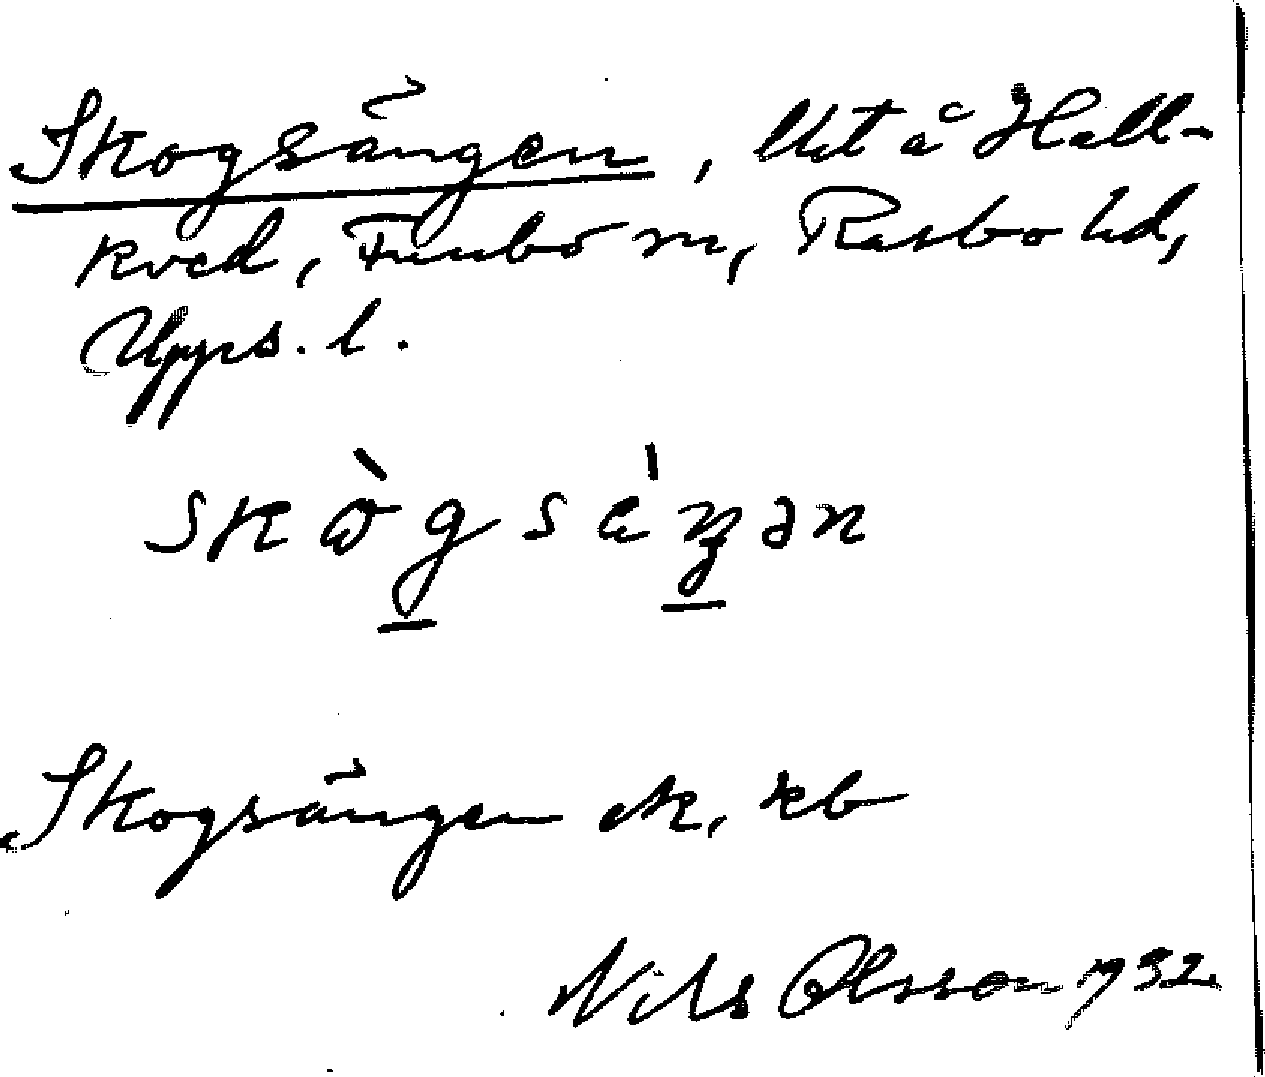 Skogsängen, Utt å Hall-
kved, Funbo sn, Rasbo hd,
Upps. l.
skògsáŋən
Skogsängen ek, kb
Nils Olsson 1932.